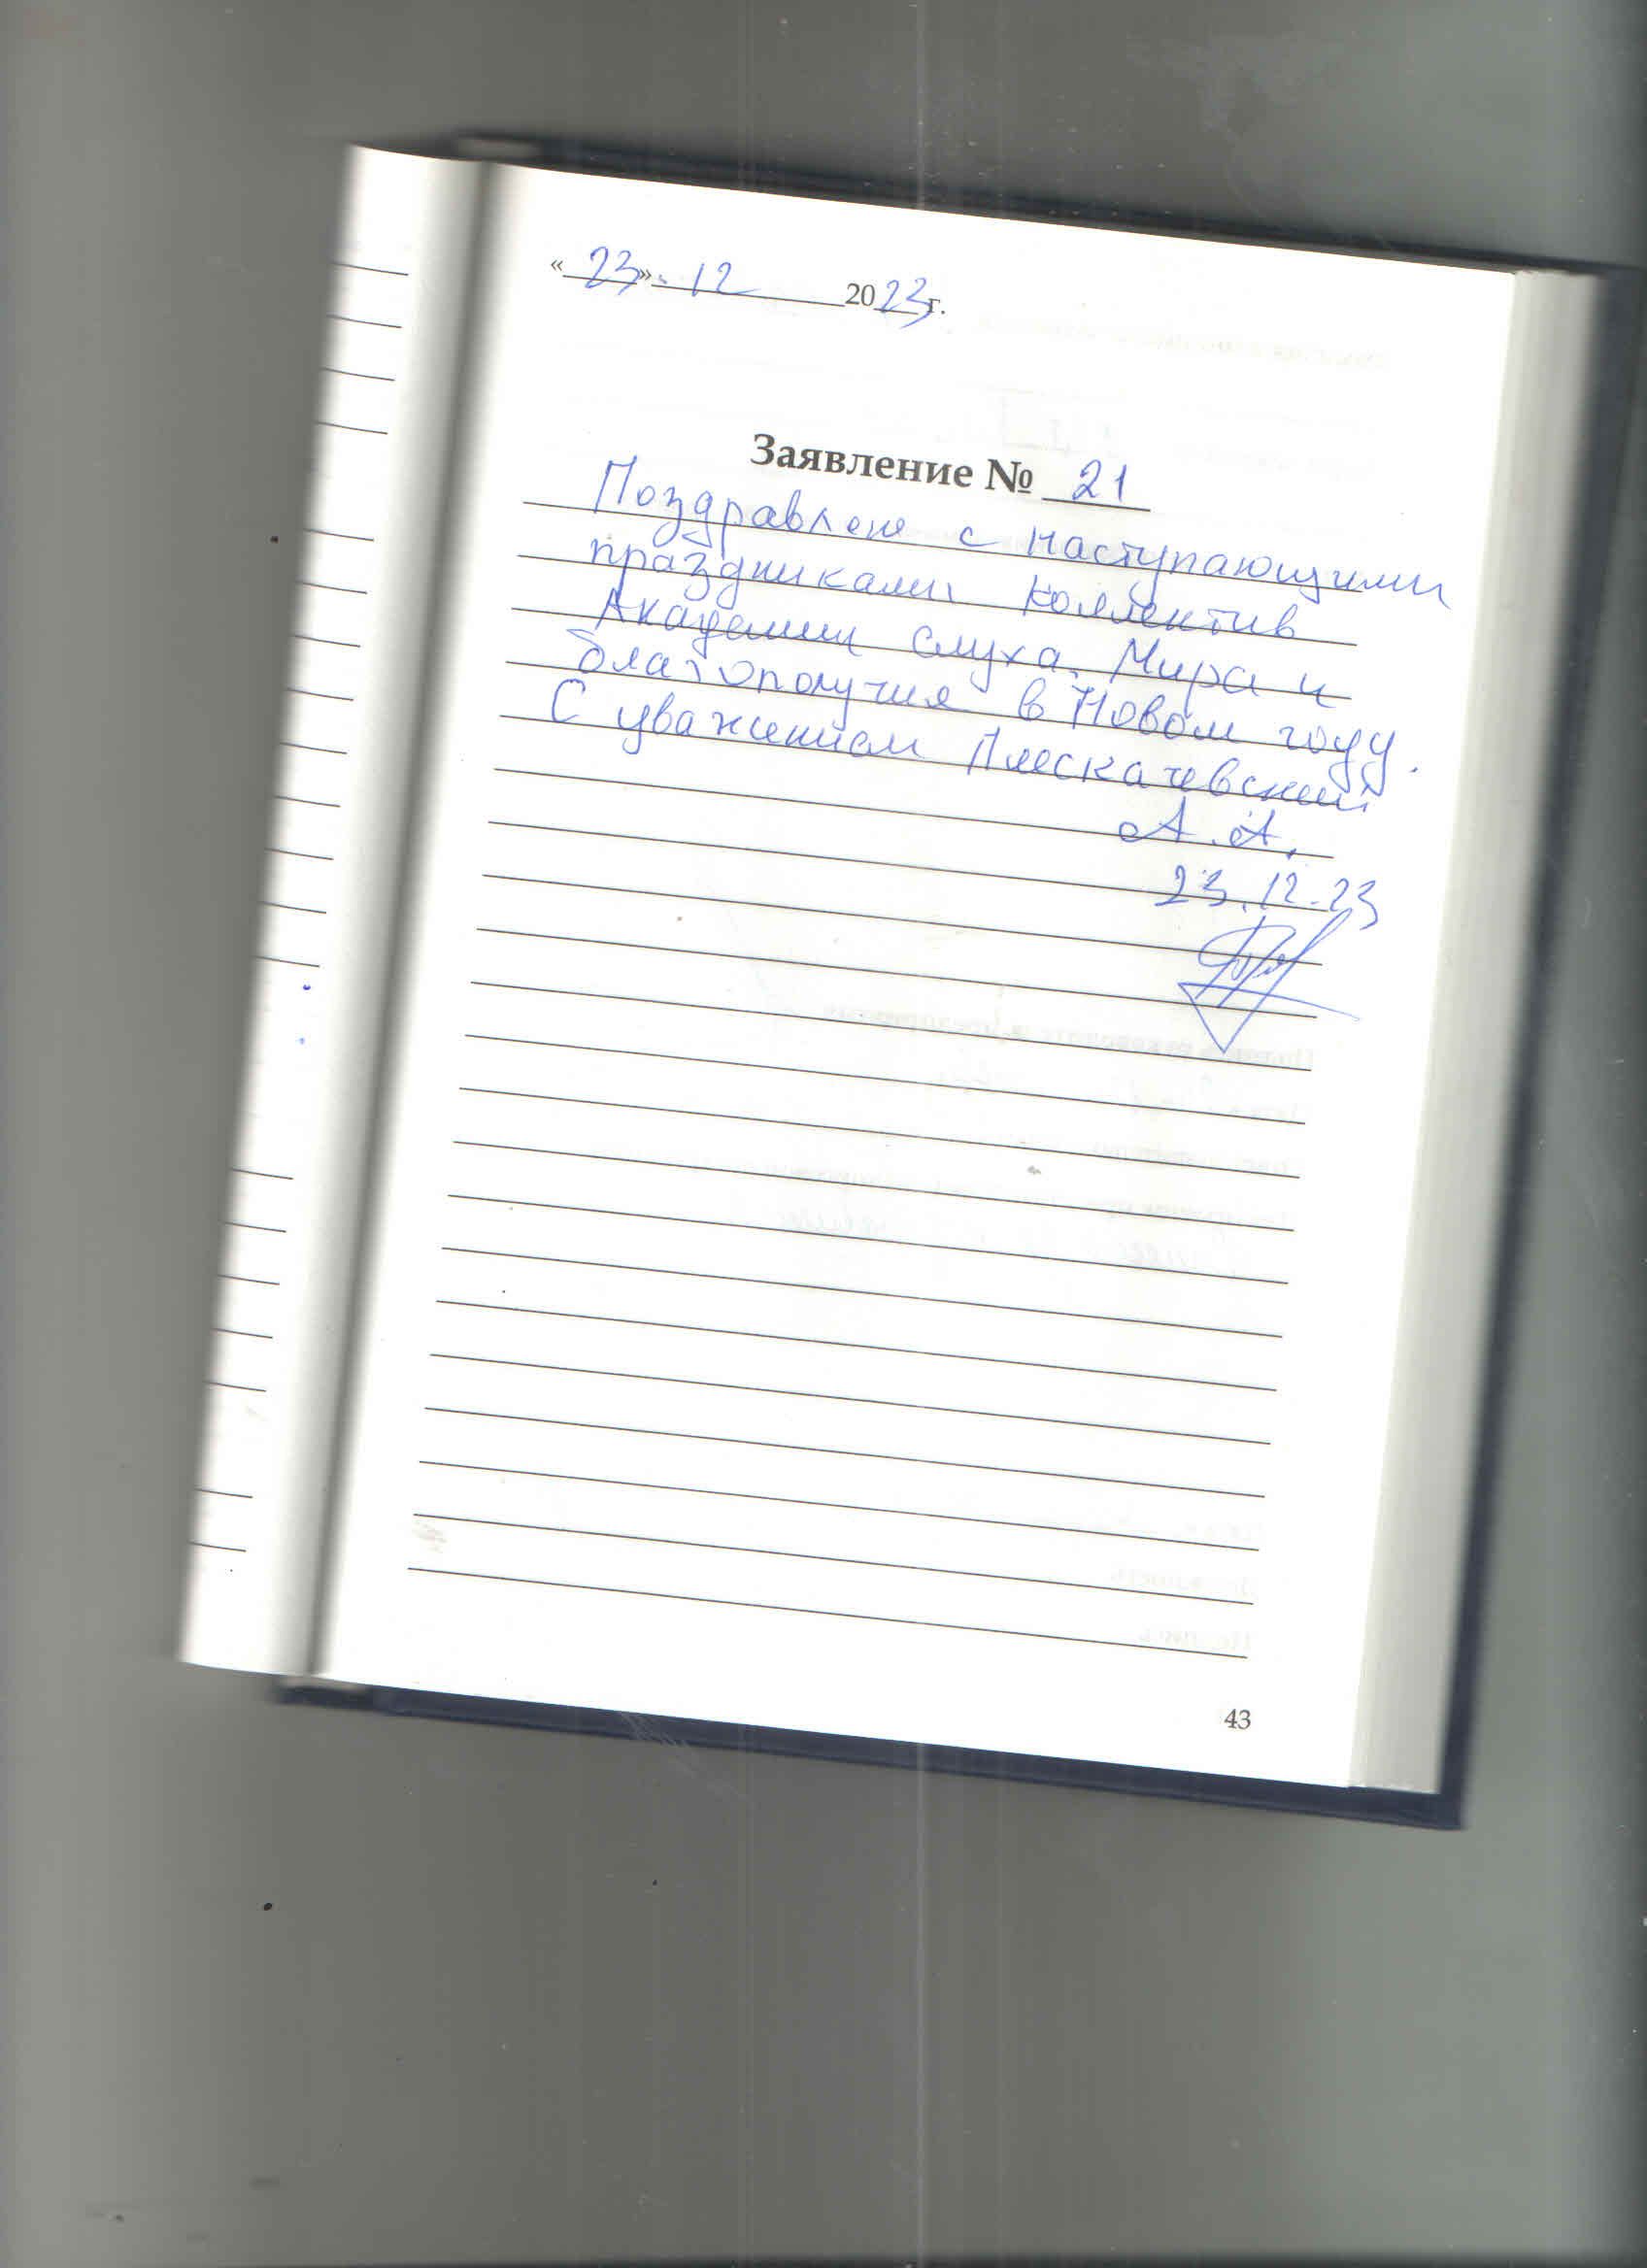 «23». 12 2023 г.
Заявление № 21
Поздравляю с наступающими
праздниками коллектив
Академии слуха. Мира и
благополучия в Новом году.
С уважением Плескачевский
А.А.
23.12.23
43